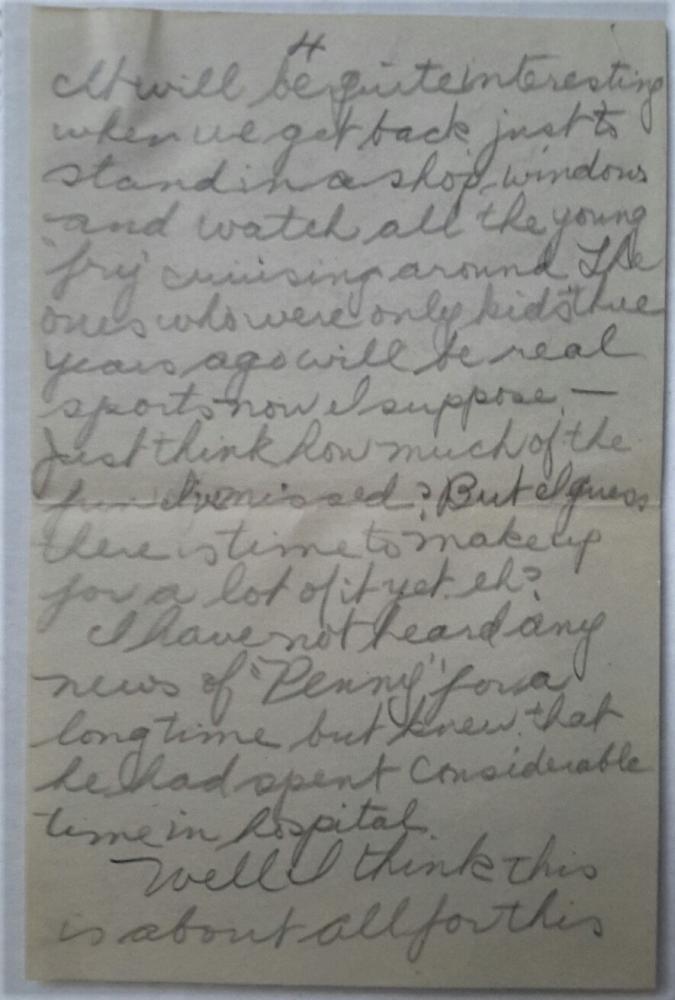 4
It will be quite interesting
when we get back just to
stand in a shop windows
and watch all the young
"fry" cruising around The
ones who were only "kids" three
years ago will be real
sports now I suppose —
Just think how much of the
fun I've missed? But I guess
there is time to make up
for a lot of it yet eh?
I have not heard any
news of "Penny" for a
long time but knew that
he had spent considerable
time in hospital.
Well I think this
is about all for this